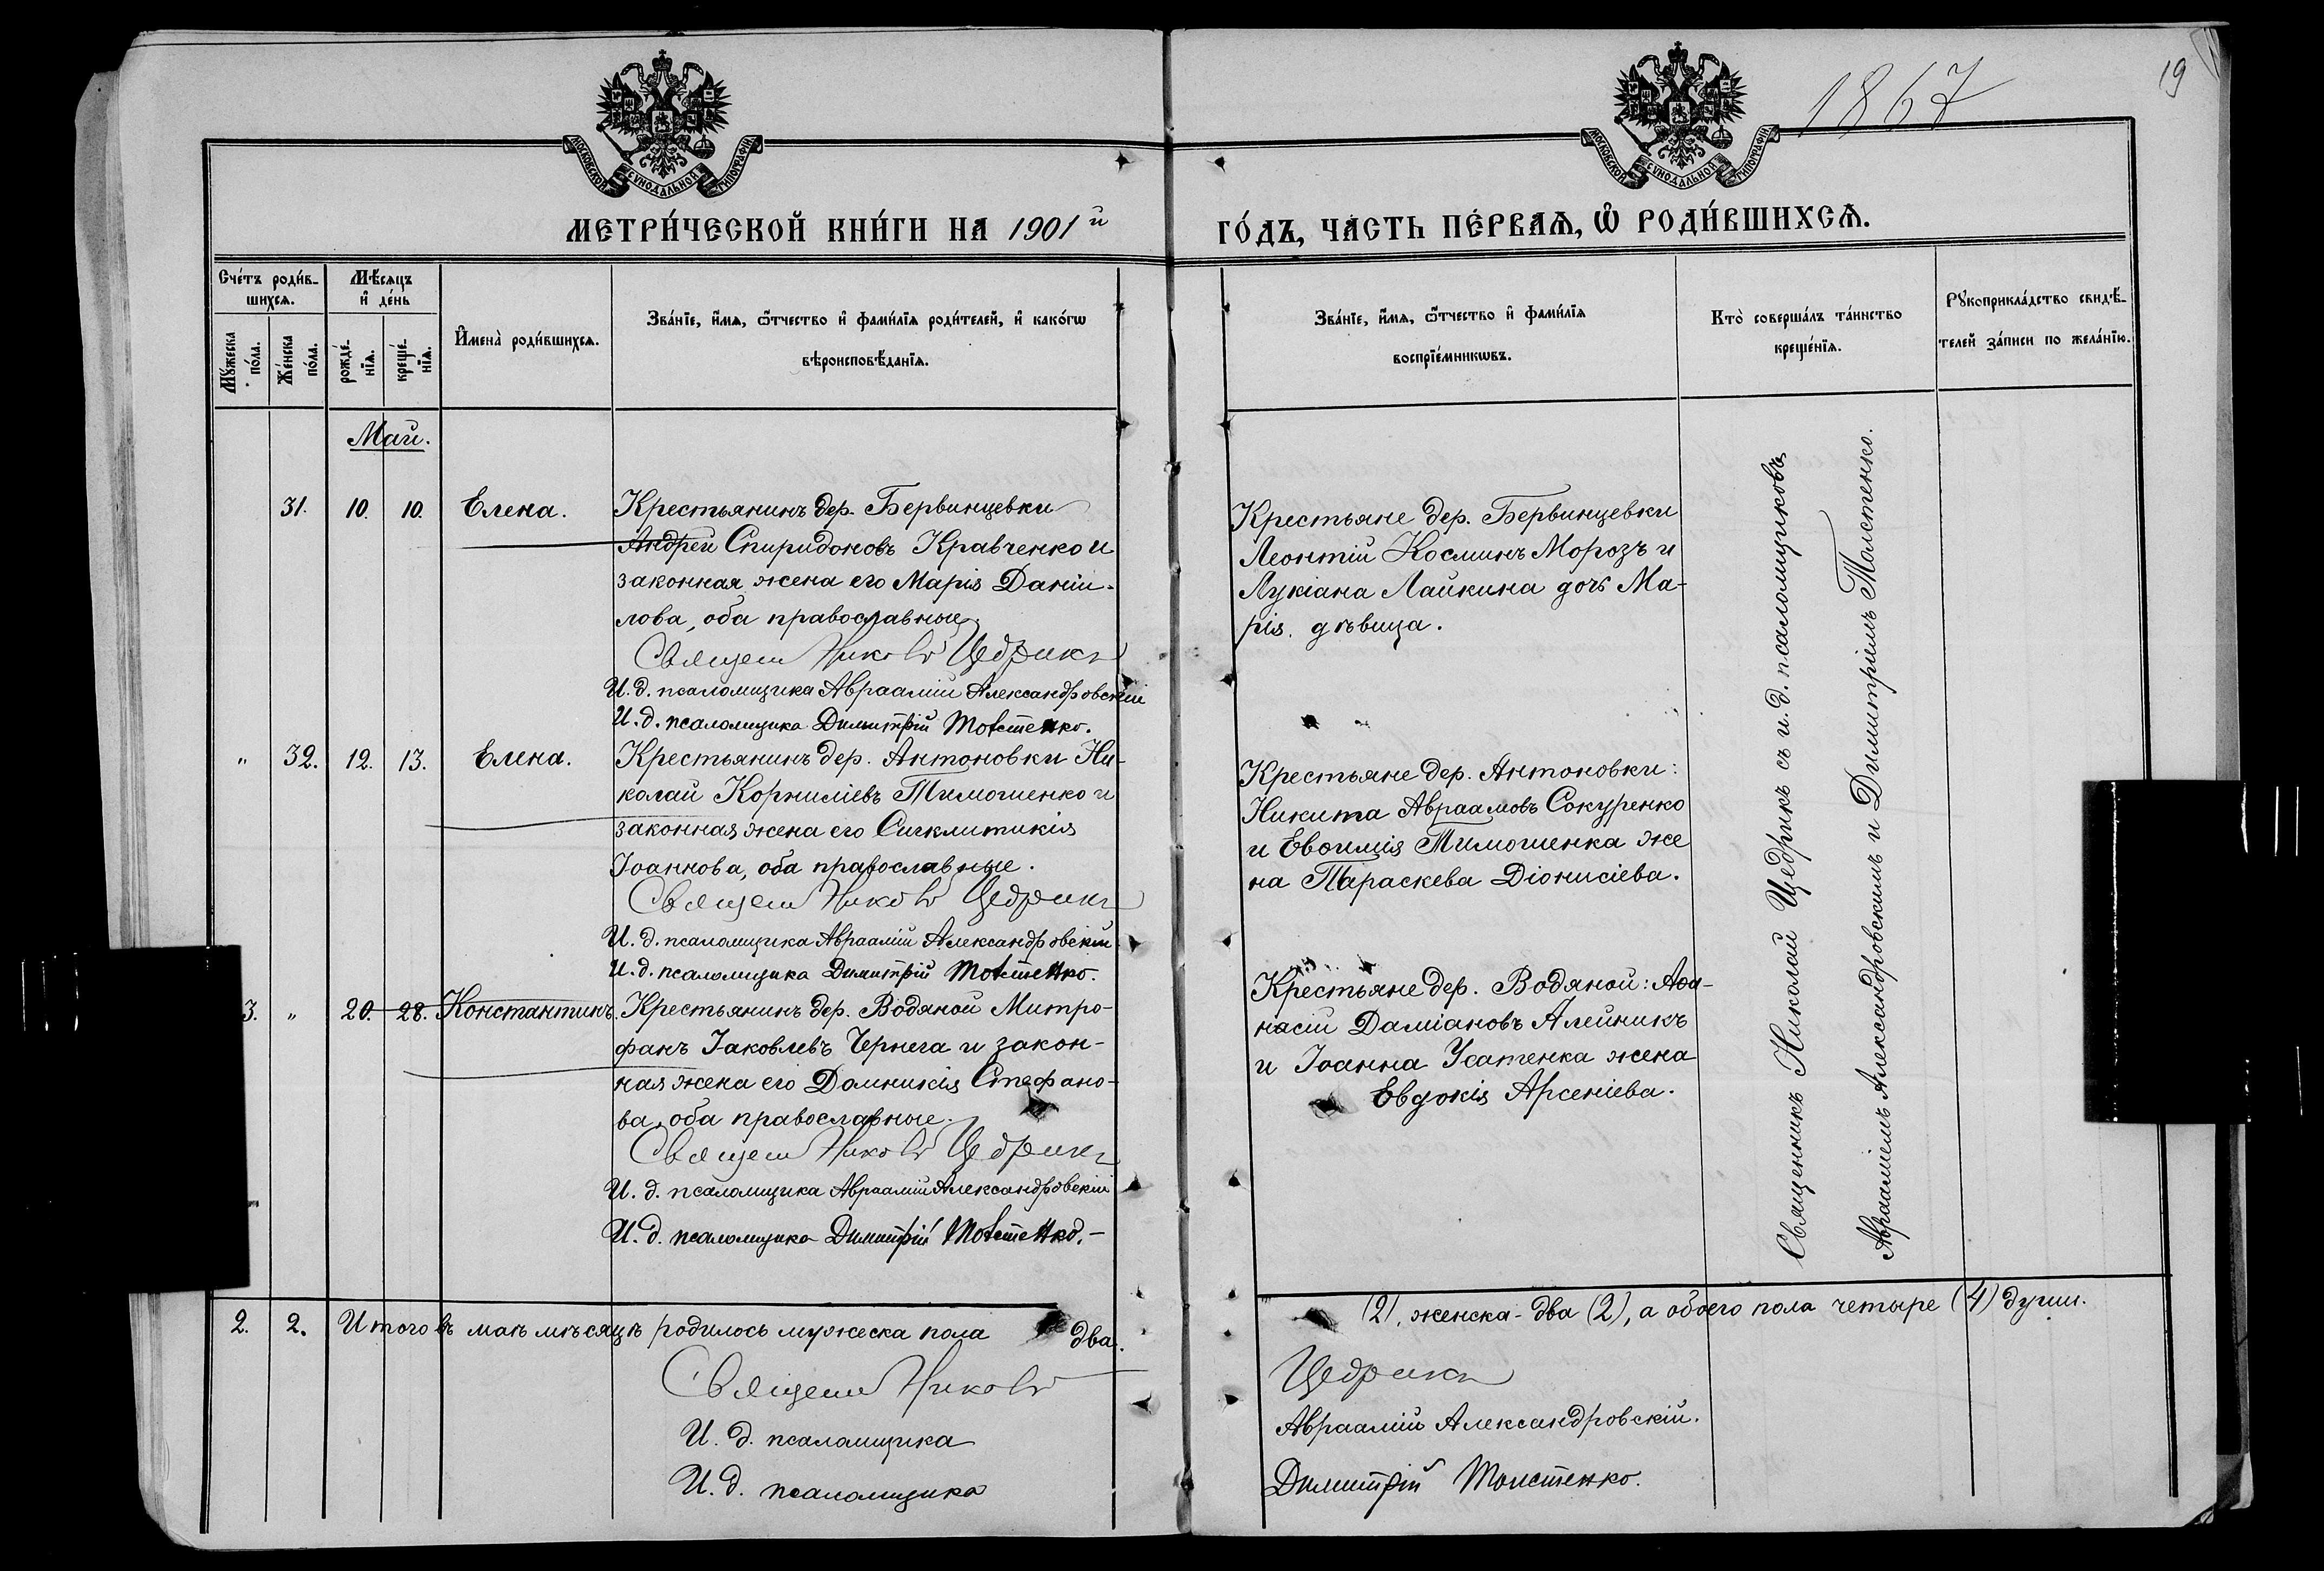 1867
19
МОСКОВСКОЙ СѴНОДАЛЬНОЙ ТИПОГРАФІИ
МОСКОВСКОЙ СѴНОДАЛЬНОЙ ТИПОГРАФІИ
МЕТРИ́ЧЕСКОЙ КНИ́ГИ НА 1901й
ГО́ДЪ, ЧА́СТЬ ПЕ́РВАѦ, Ѽ РОДИ́ВШИХСѦ.
Сче́тъ роди́в-
шихсѧ.
Мꙋ́жеска
по́ла.
Же́нска
по́ла.
Мѣ́сѧцъ
и҆ де́нь
рожде́-
нїѧ.
креще́-
нїѧ.
И҆мена̀ роди́вшихсѧ.
Зва́нїе, и҆́мѧ, ѻ҆́тчество и҆ фами́лїѧ роди́телей, и҆ како́гѡ
вѣроисповѣ́данїѧ.
Зва́нїе, и҆́мѧ, ѻ҆́тчество и҆ фами́лїѧ
воспрїе́мникѡвъ.
Кто̀ соверша́лъ та́инство
креще́нїѧ.
Рꙋкоприкла́дство свидѣ́-
телей за́писи по жела́нїю.
Май.
31. 10. 10. Елена. Крестьянинъ дер. Бервинцевки
Андрей Спиридоновъ Кравченко и
законная жена его Марія Даніи-
лова, оба православные.
Священ Никол Щедрикъ
И. д. псаломщика Авраамій Александровскій
И. д. псаломщика Димитрій Толстенко.
Крестьяне дер. Бервинцевки
Леонтій Косминъ Морозъ и
Лукіана Лайкина дочь Ма-
рія, дѣвица.
" 32. 12. 13. Елена. Крестьянинъ дер. Антоновки Ни-
колай Корниліевъ Тимошенко и
законная жена его Сигклитикія
Іоаннова, оба православные.
Священ Никол Щедрикъ
И. д. псаломщика Авраамій Александровскій
И. д. псаломщика Димитрій Толстенко.
Крестьяне дер. Антоновки:
Никита Авраамовъ Сокуренко
и Евѳимія Тимошенка же
на Параскева Діонисіева.
3. " 20. 28. Константинъ. Крестьянинъ дер. Водяной Митро-
фанъ Іаковлевъ Чернега и закон-
ная жена его Домникія Стефано-
ва, оба православные.
Священ Никол Щедрикъ
И. д. псаломщика Авраамій Александровскій
И. д. псаломщика Димитрій Толстенко.-
Крестьяне дер. Водяной: Аѳа-
насій Даміановъ Алейникъ
и Іоанна Усатенка жена
Евдокія Арсеніева.
Священникъ Николай Щедрикъ съ и. д. псаломщиковъ
Авраамiемъ Александровскимъ и Димитріемъ Толстенко.
2. 2. Итого въ маѣ мѣсяцѣ родилось мужеска пола два.
(2), женска - два (2), а обоего пола четыре (4) души.
Священ Никол
Щедрикъ
И. д. псаломщика
Авраамій Александровскій.
И. д. псаломщика
Димитрій Толстенко.